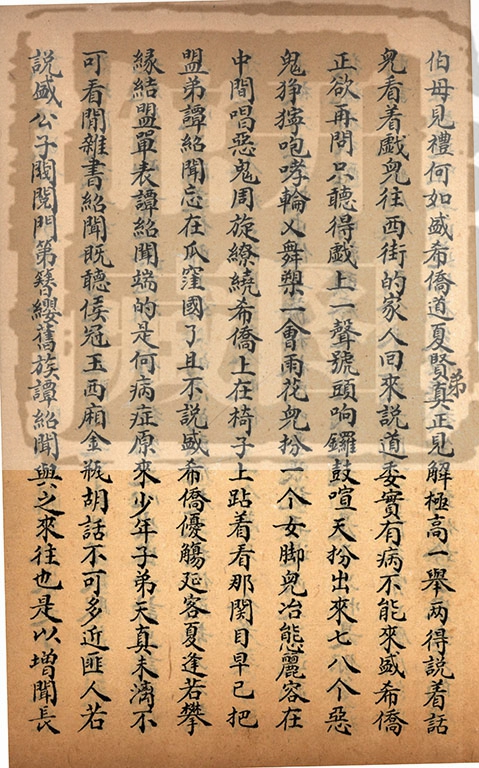 伯母見禮何如盛希僑道夏賢弟真正見解極高一舉两得説着話
兒看着戲兒往西街的家人囘來説道委實有病不能來盛希僑
正欲再問只聽得戲上一聲號頭响鑼鼓喧天扮出來七八个惡
鬼狰獰咆哮輪义舞槊一會雨花兒扮一个女脚兒冶態麗容在
中間唱惡鬼周旋繚繞希僑上在椅子上跕着看那関目早已把
盟弟譚紹聞忘在瓜窪國了且不説盛希僑優觴延客夏逢若攀
緣結盟單表譚紹聞端的是何病症原來少年子弟天真未漓不
可看閒雜書紹聞既聽侯冠玉西廂金瓶胡話不可多近匪人若
説盛公子閥閲門第簪纓舊族譚紹聞與之來往也是以增聞長